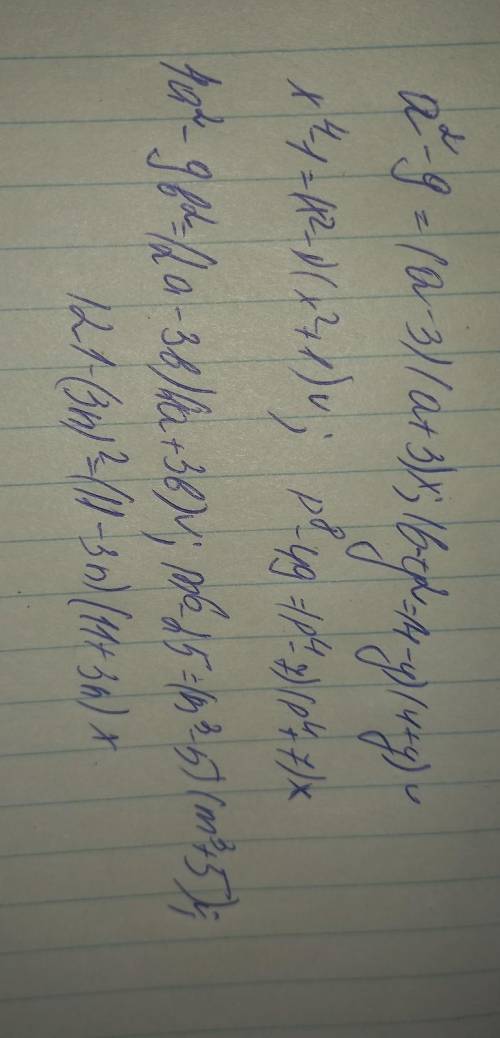 a² - 9 = (a - 3)(a + 3)x; 16 - y² = (4 - y)(4 + y) v
x⁴ - 1 = (x² - 1)(x² + 1) v; p⁸ - 49 = (p⁴ - 7)(p⁴ + 7) x
4a² - 9b² = (2a - 3b)(2a + 3b) v; m⁶ - 25 = (m³ - 5)(m³ + 5) v;
121 - (3n)² = (11 - 3n)(11 + 3n) x